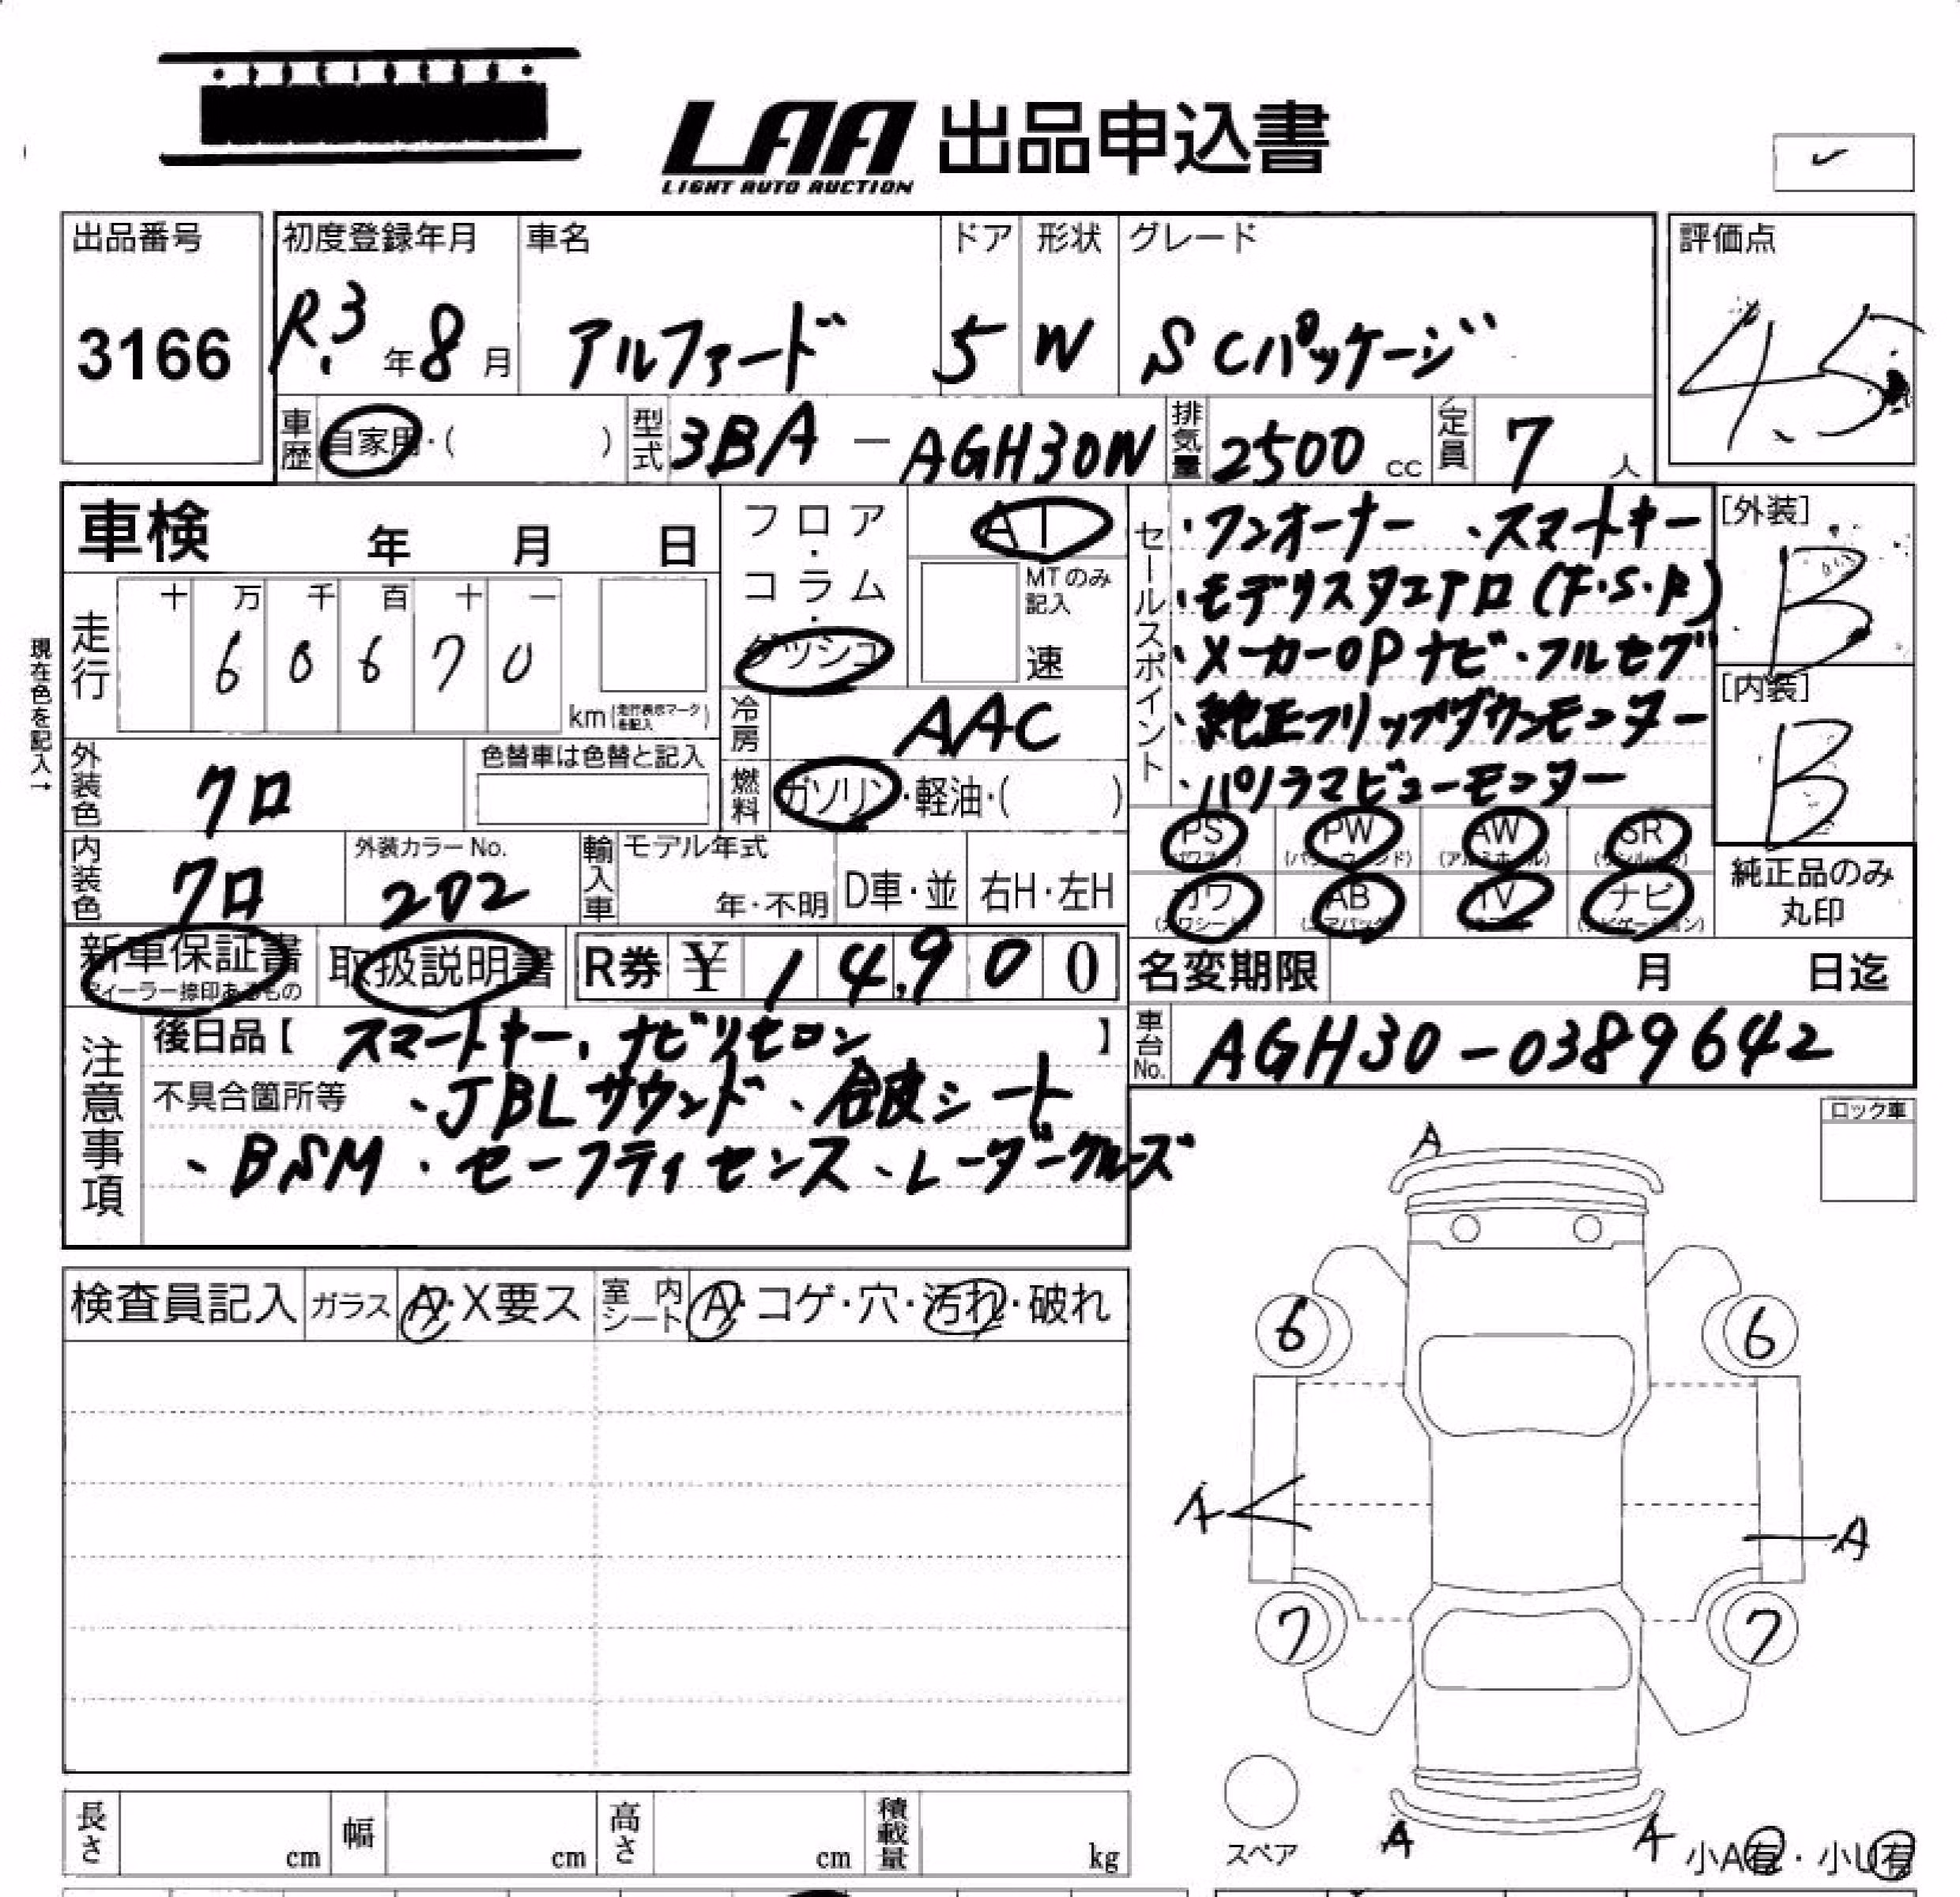 LAA 出品申込書
LIGHT AUTO AUCTION
出品番号
3166
初度登録年月
R.3年8月
車名
アルファード
ドア
5
形状
W
グレード
S Cパッケージ
評価点
4.5
車歴 自家用・( )
型式 3BA - AGH30W
排気量 2500 cc
定員 7 人
車検 年 月 日
フロア・コラム・ダッシュ
AT
MTのみ記入
速
現在色を記入→
走行
十 万 千 百 十 一
6 0 6 7 0
km(走行表示マークを記入)
冷房 AAC
燃料 ガソリン・軽油・( )
外装色 クロ
色替車は色替と記入
内装色 クロ
外装カラーNo.
202
輸入車
モデル年式
年・不明
D車・並
右H・左H
セールスポイント
・ワンオーナー ・スマートキー
・モデリスタエアロ(F・S・R)
・メーカーOPナビ・フルセグ
・純正フリップダウンモニター
・パノラマビューモニター
[外装]
B
[内装]
B
PS PW AW SR
(パワステ) (パワーウィンド) (アルミホイル) (サンルーフ)
カワ AB TV ナビ
(カワシート) (エアバッグ) (ナビゲーション)
純正品のみ
丸印
新車保証書
ディーラー捺印あるもの
取扱説明書
R券 ¥ 14,900
名変期限 月 日迄
車台No. AGH30-0389642
注意事項
後日品【 スマートキー、ナビリモコン 】
不具合箇所等 、JBLサウンド、合皮シート
、BSM・セーフティセンス、レーダークルーズ
ロック車
検査員記入
ガラス A・X要ス
室内シート A・コゲ・穴・汚れ・破れ
A
6 6
A A
7 7
スペア
A A
小A有・小U有
長さ cm
幅 cm
高さ cm
積載量 kg